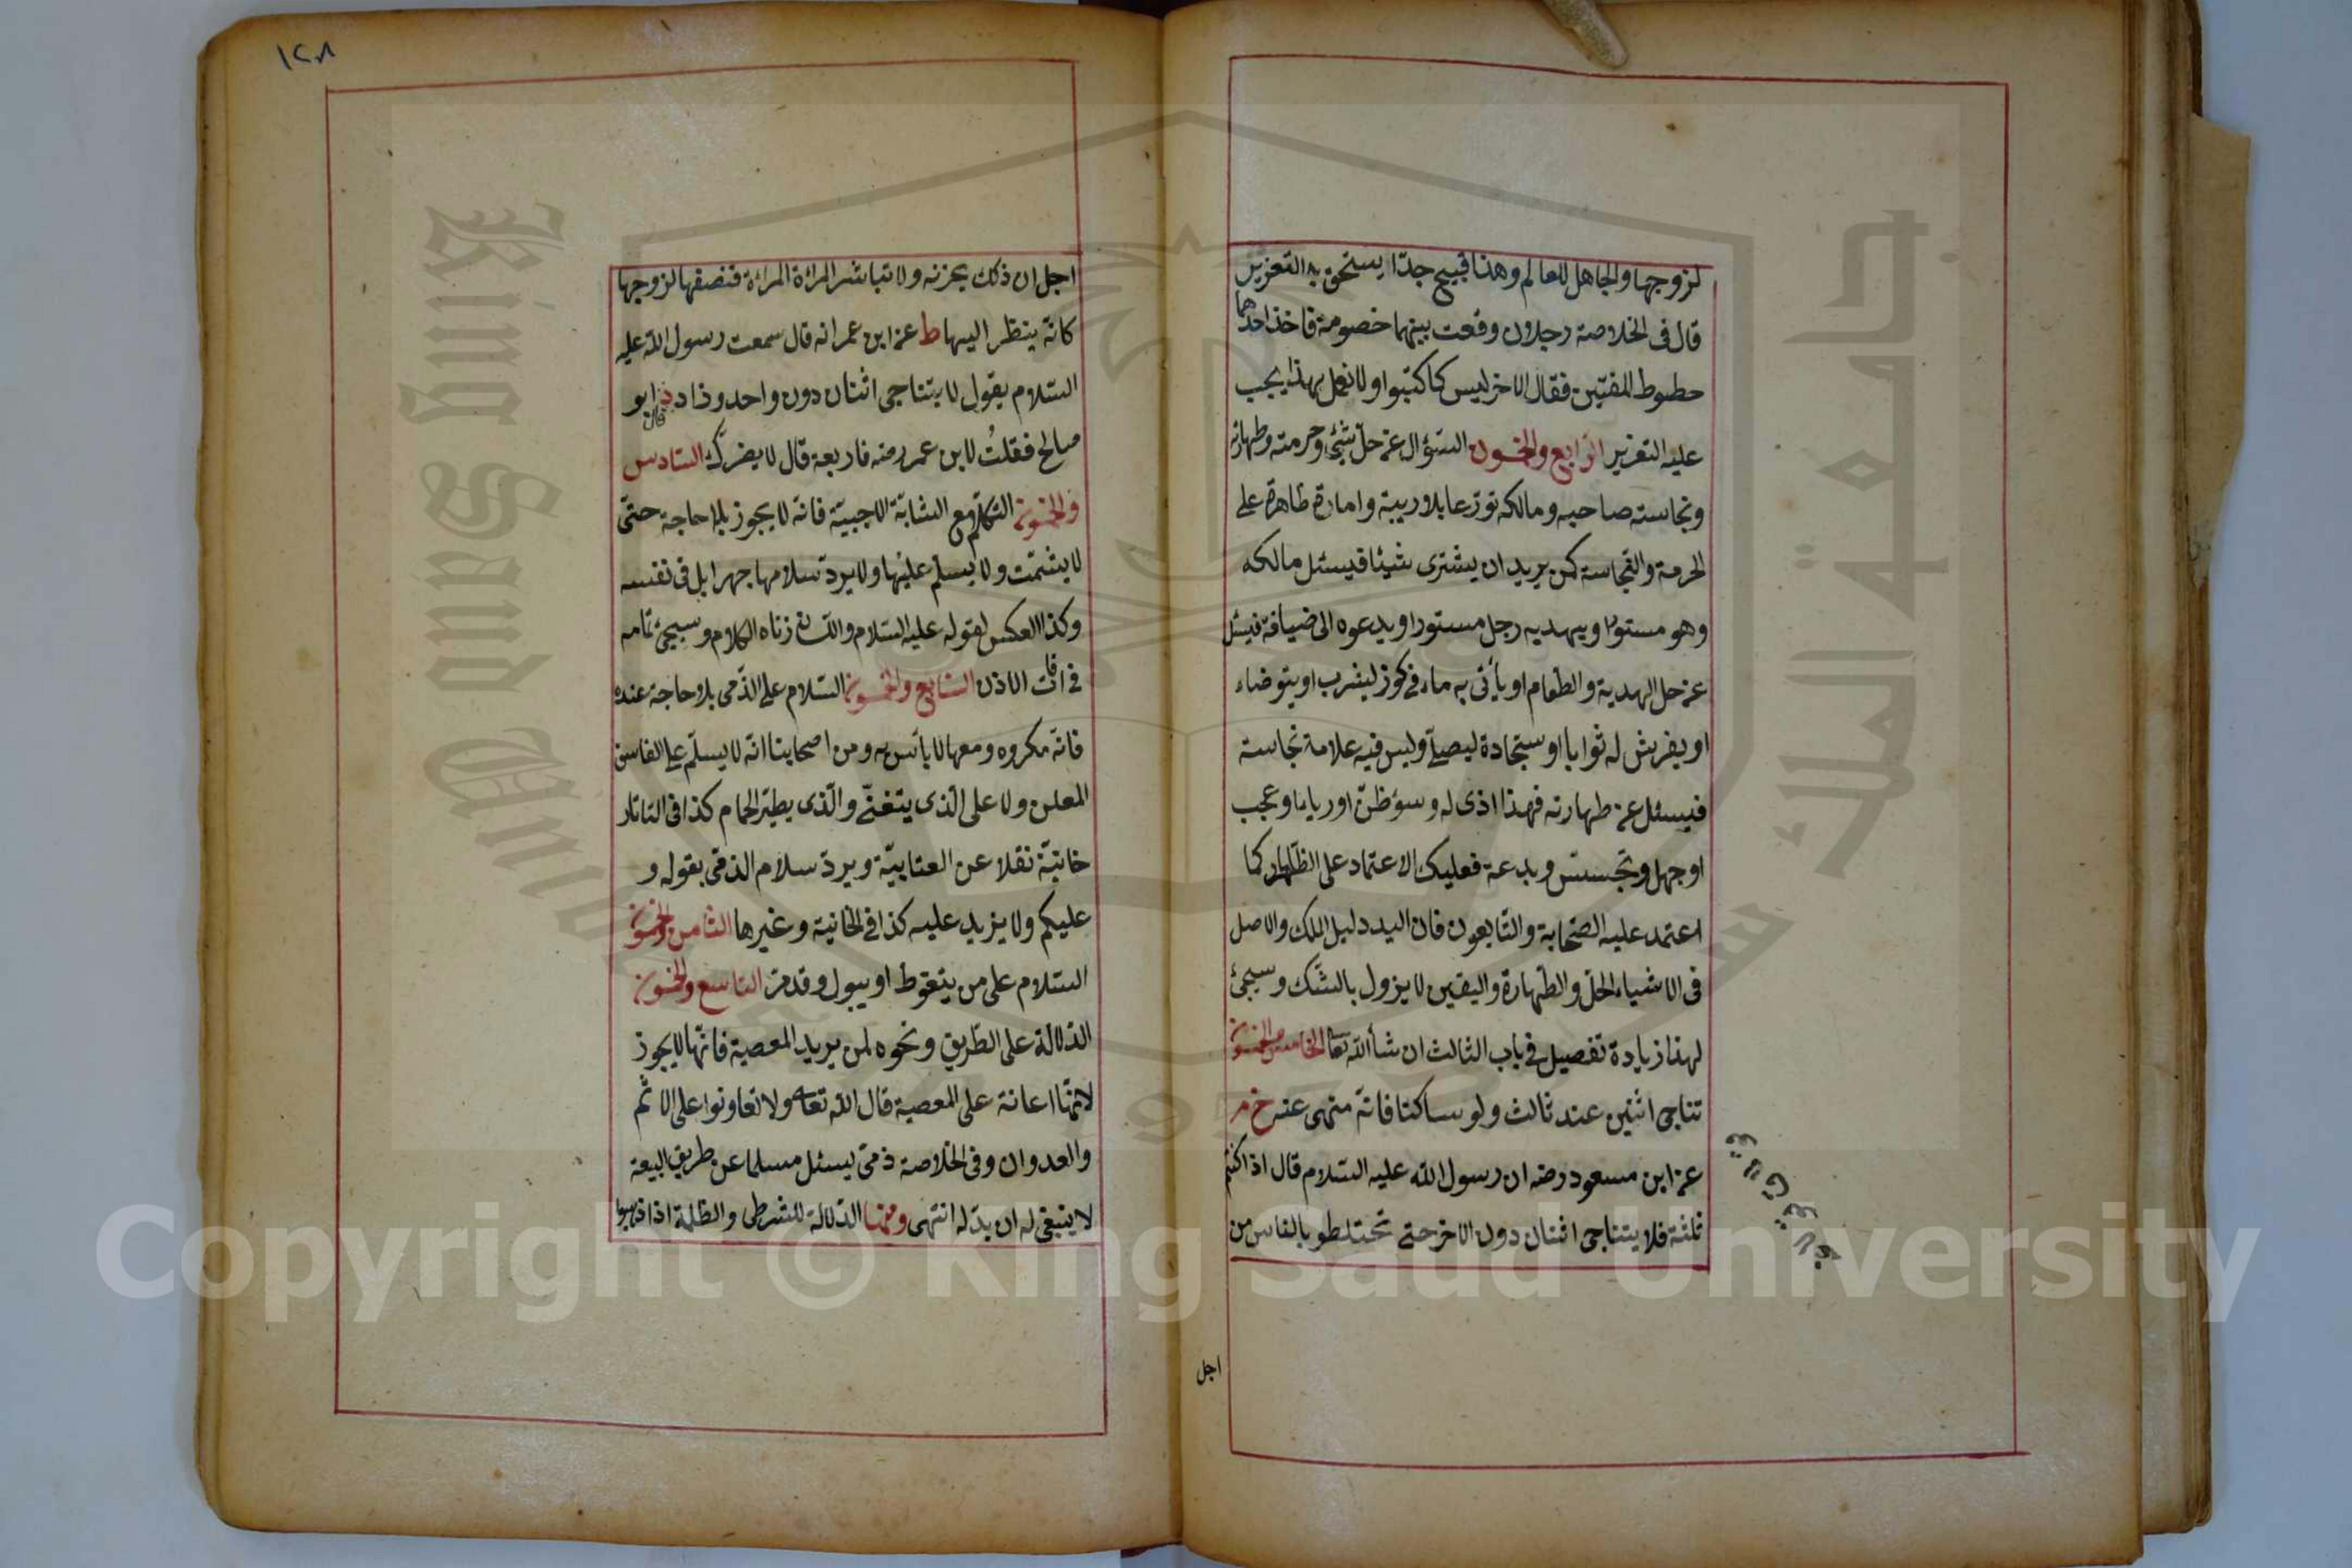 لزوجها والجاهل للعالم وهذا قبيح جدّا يستحق به التعزير
قال فى الخلاصة رجلان وقعت بينهما خصومة فاخذ احدهما
خطوط المفتين فقال الاخر ليس كما كتبوا ولا نعمل بهذا يجب
عليه التعزير الرابع والخمسون السّؤال عن حلّ شئ وحرمته وطهارته
ونجاسته صاحبه ومالكه تورّعا بلا ريبة وامارة ظاهرة على
الحرمة والنّجاسة كمن يريد ان يشترى شيئا فيسئل مالكه
وهو مستور ويهديه رجل مستور او يدعوه الى ضيافة فيسئل
عن حل الهدية والطعام او يأتى به ماء فى كوز ليشرب او يتوضاء
او يفرش له ثوابا او سجّادة ليصلّى وليس فيه علامة نجاسة
فيسئل عن طهارته فهذا اذى له وسؤ ظنّ او رياء او عجب
او جهل وتجسّس وبدعة فعليك الاعتماد على الظّاهر كما
اعتمد عليه الصّحابة والتّابعون فان اليد دليل الملك والاصل
فى الاشياء الحلّ والطّهارة واليقين لا يزول بالشّك وسيجئ
لهذا زيادة تفصيل فى باب الثالث ان شأ اللّه تعالى الخامس والخمسون
تناجى اثنين عند ثالث ولو ساكتا فانّه منهى عنه خ م
عن ابن مسعود رضه ان رسول اللّه عليه السّلام قال اذا كنتم
ثلثة فلا يتناجى اثنان دون الاخر حتى تختلطو بالناس من
اجل
١٢٨
اجل ان ذلك يحزنه ولا تباشر المرائة المرائة فتصفها لزوجها
كانّه ينظر اليها ط عن ابن عمر انه قال سمعت رسول اللّه عليه
السّلام يقول لا يتناجى اثنان دون واحد وزاد د ابو
قال
صالح فقلتُ لابن عمر رضه فاربعة قال لا يضرّك السّادس
والخمسون التكلّم مع الشابّة الاجنبيّة فانّه لا يجوز بلا حاجة حتّى
لا يشمّت ولا يسلّم عليها ولا يردّ سلامها جهرا بل فى نفسه
وكذا العكس لقوله عليه السّلام واللّسان زناه الكلام وسيجئ تمامه
فى افات الاذن السّابع والخمسون السّلام على الذّمى بلا حاجة عنده
فانّه مكروه ومعها لا بأس به ومن اصحابنا انّه لا يسلّم على الفاسق
المعلن ولا على الّذى يتغنّى والّذى يطيّر الحمام كذا فى التاتار
خانيّة نقلا عن العتابيّة ويردّ سلام الذمّى بقوله و
عليكم ولا يزيد عليه كذا فى الخانية وغيرها الثامن والخمسون
السّلام على من يتغوّط او يبول وقد مرّ التاسع والخمسون
الدّلالة على الطّريق ونحوه لمن يريد المعصية فانّها لا يجوز
لانّها اعانة على المعصية قال اللّه تعالى ولا تعاونوا على الاثم
والعدوان وفى الخلاصة ذمّى يسئل مسلما عن طريق البيعة
لا ينبغى له ان يدلّه انتهى ومنها الدّلالة للشرطى والظلمة اذا ذهبوا